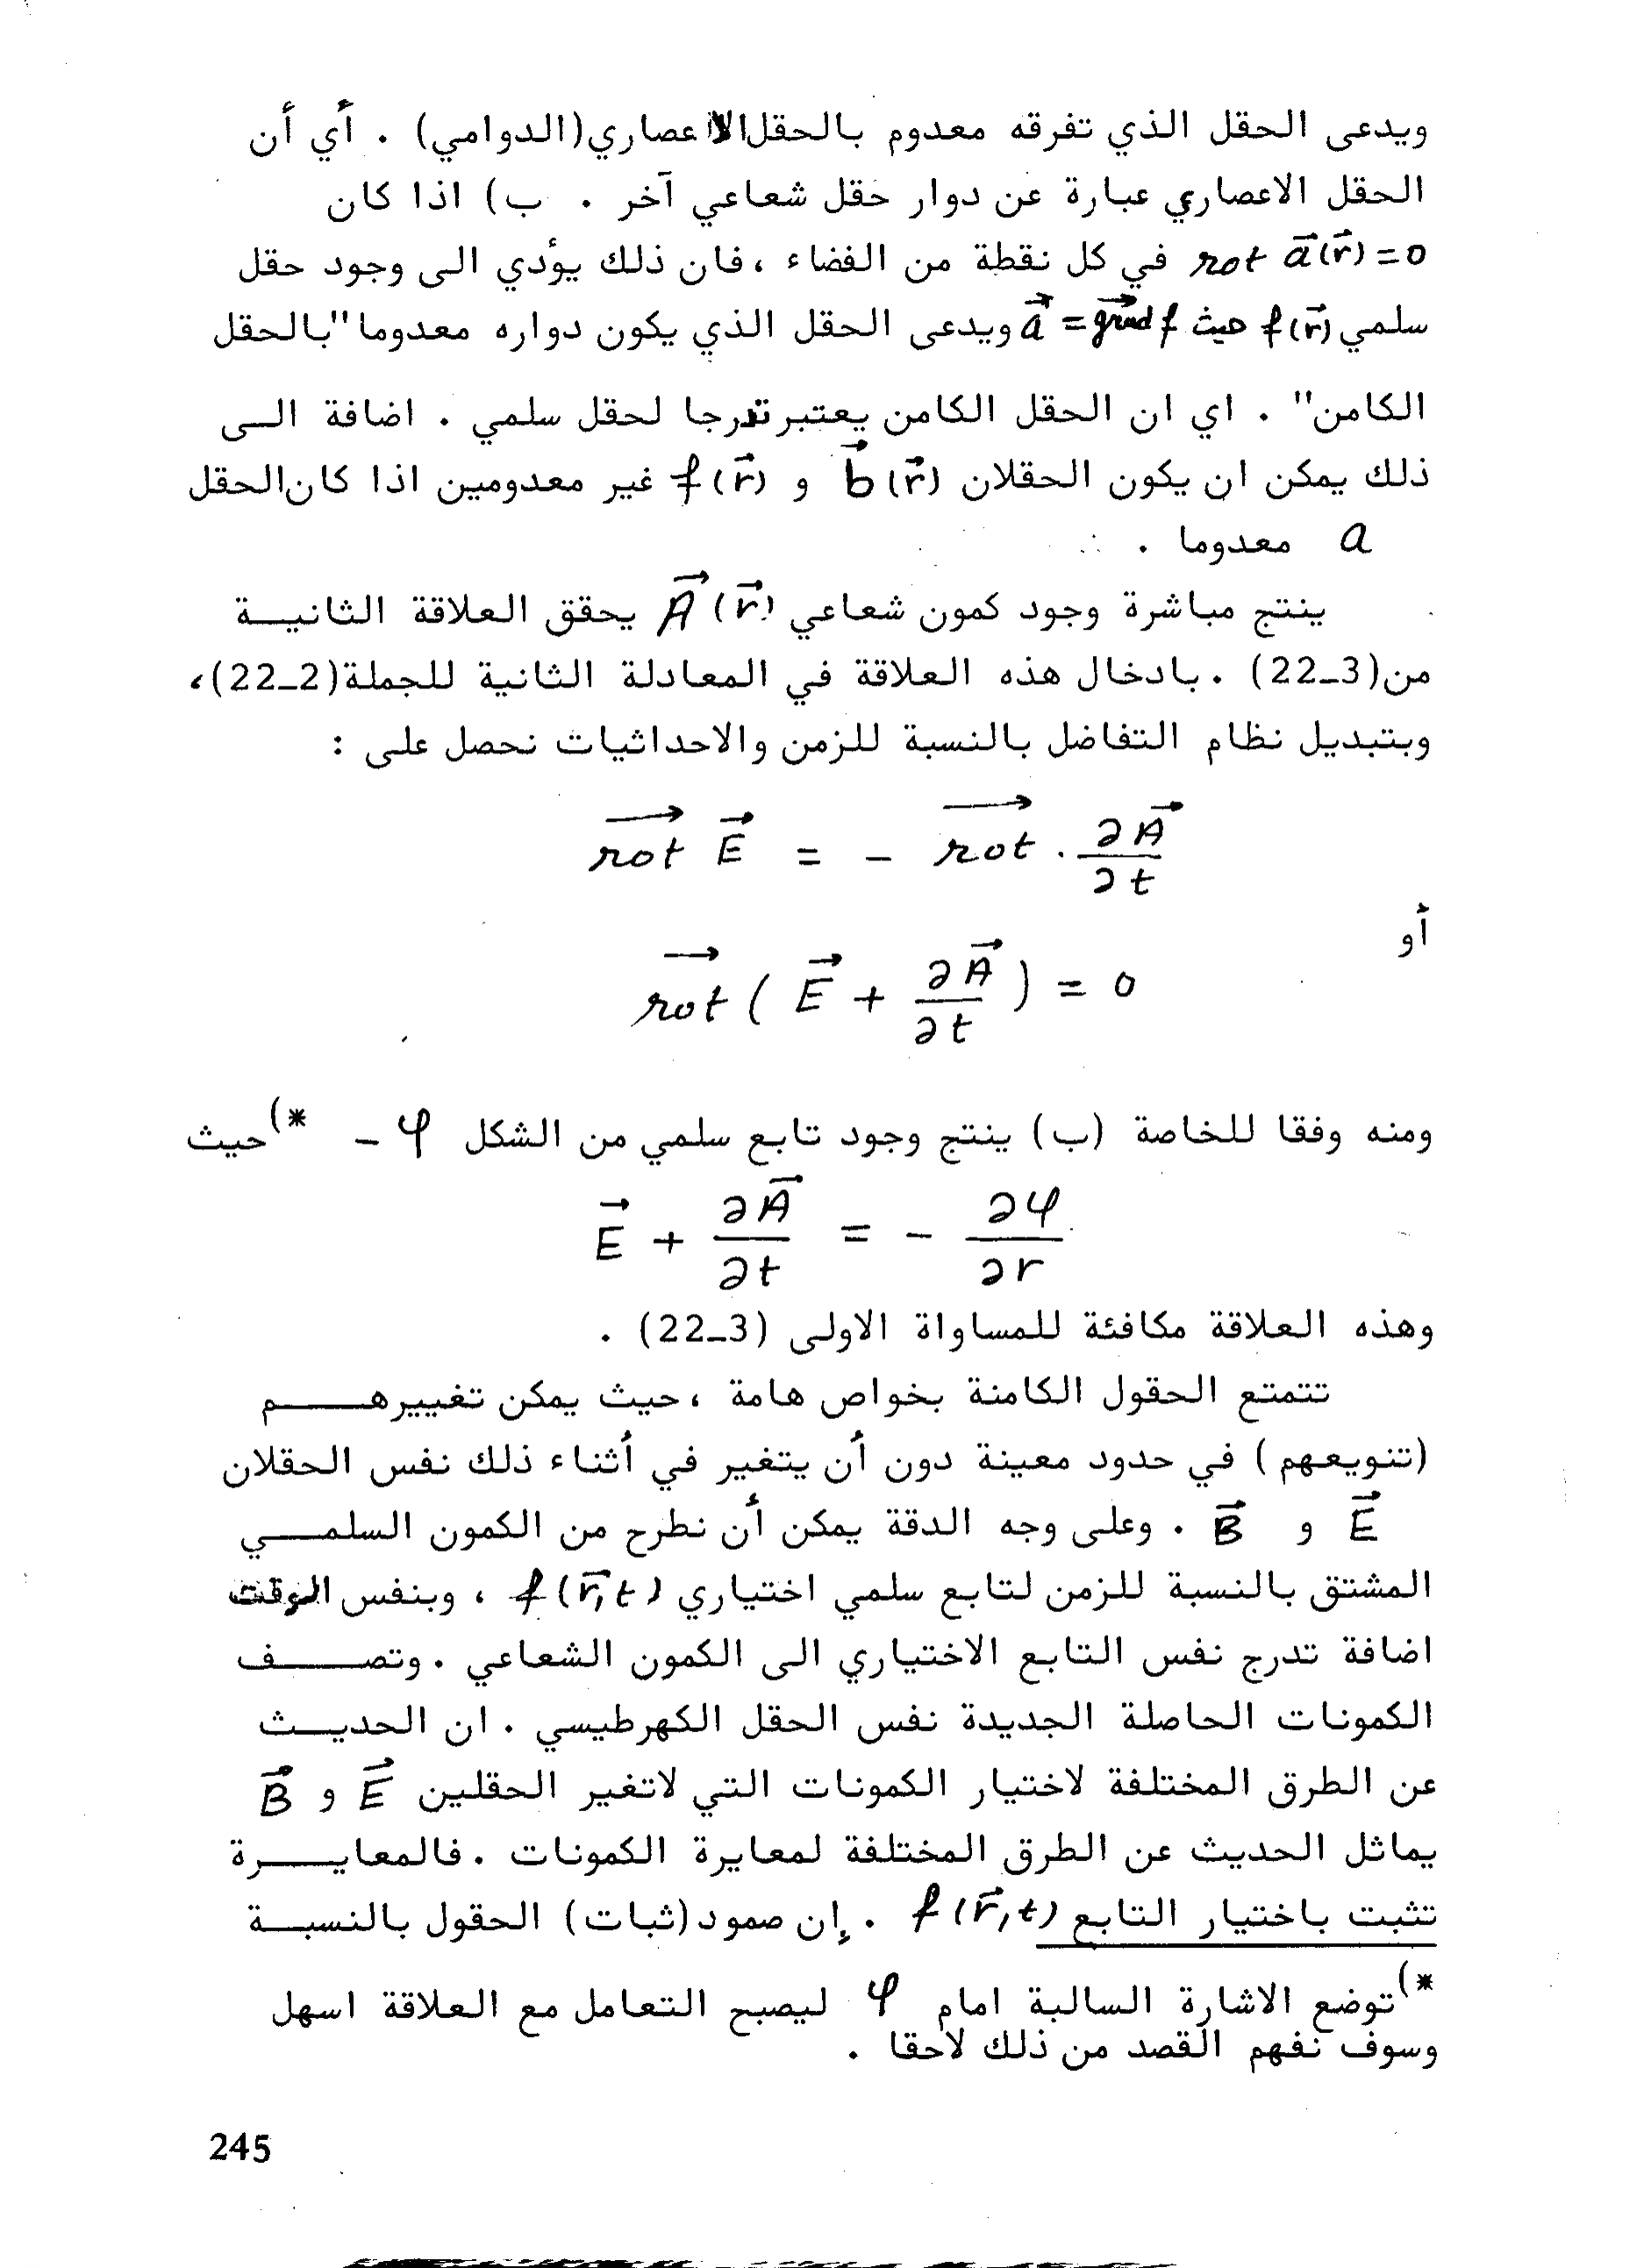 ويدعى الحقل الذي تفرقه معدوم بالحقل الاعصاري (الدوامي) . أي أن
الحقل الاعصاري عبارة عن دوار حقل شعاعي آخر . ب) اذا كان
rot a⃗(r⃗) = 0 في كل نقطة من الفضاء ، فان ذلك يؤدي الى وجود حقل
سلمي f(r⃗) حيث a⃗ = grad⃗ f ويدعى الحقل الذي يكون دواره معدوما "بالحقل
الكامن" . اي ان الحقل الكامن يعتبر تدرجا لحقل سلمي . اضافة الى
ذلك يمكن ان يكون الحقلان b⃗(r⃗) و f(r⃗) غير معدومين اذا كان الحقل
a معدوما .
ينتج مباشرة وجود كمون شعاعي A⃗(r⃗) يحقق العلاقة الثانية
من (22_3) . بادخال هذه العلاقة في المعادلة الثانية للجملة (22_2)،
وبتبديل نظام التفاضل بالنسبة للزمن والاحداثيات نحصل على :
rot⃗ E⃗ = - rot⃗ . ∂A⃗/∂t
أو
rot⃗ ( E⃗ + ∂A⃗/∂t ) = 0
ومنه وفقا للخاصة (ب) ينتج وجود تابع سلمي من الشكل φ - *) حيث
E⃗ + ∂A⃗/∂t = - ∂φ/∂r
وهذه العلاقة مكافئة للمساواة الاولى (22_3) .
تتمتع الحقول الكامنة بخواص هامة ، حيث يمكن تغييرهم
(تنويعهم) في حدود معينة دون أن يتغير في أثناء ذلك نفس الحقلان
E⃗ و B⃗ . وعلى وجه الدقة يمكن أن نطرح من الكمون السلمي
المشتق بالنسبة للزمن لتابع سلمي اختياري f(r⃗,t) ، وبنفس الوقت
اضافة تدرج نفس التابع الاختياري الى الكمون الشعاعي . وتصف
الكمونات الحاصلة الجديدة نفس الحقل الكهرطيسي . ان الحديث
عن الطرق المختلفة لاختيار الكمونات التي لاتغير الحقلين E⃗ و B⃗
يماثل الحديث عن الطرق المختلفة لمعايرة الكمونات . فالمعايرة
تثبت باختيار التابع f(r⃗,t) . إن صمود (ثبات) الحقول بالنسبة
*) توضع الاشارة السالبة امام φ ليصبح التعامل مع العلاقة اسهل
وسوف نفهم القصد من ذلك لاحقا .
245